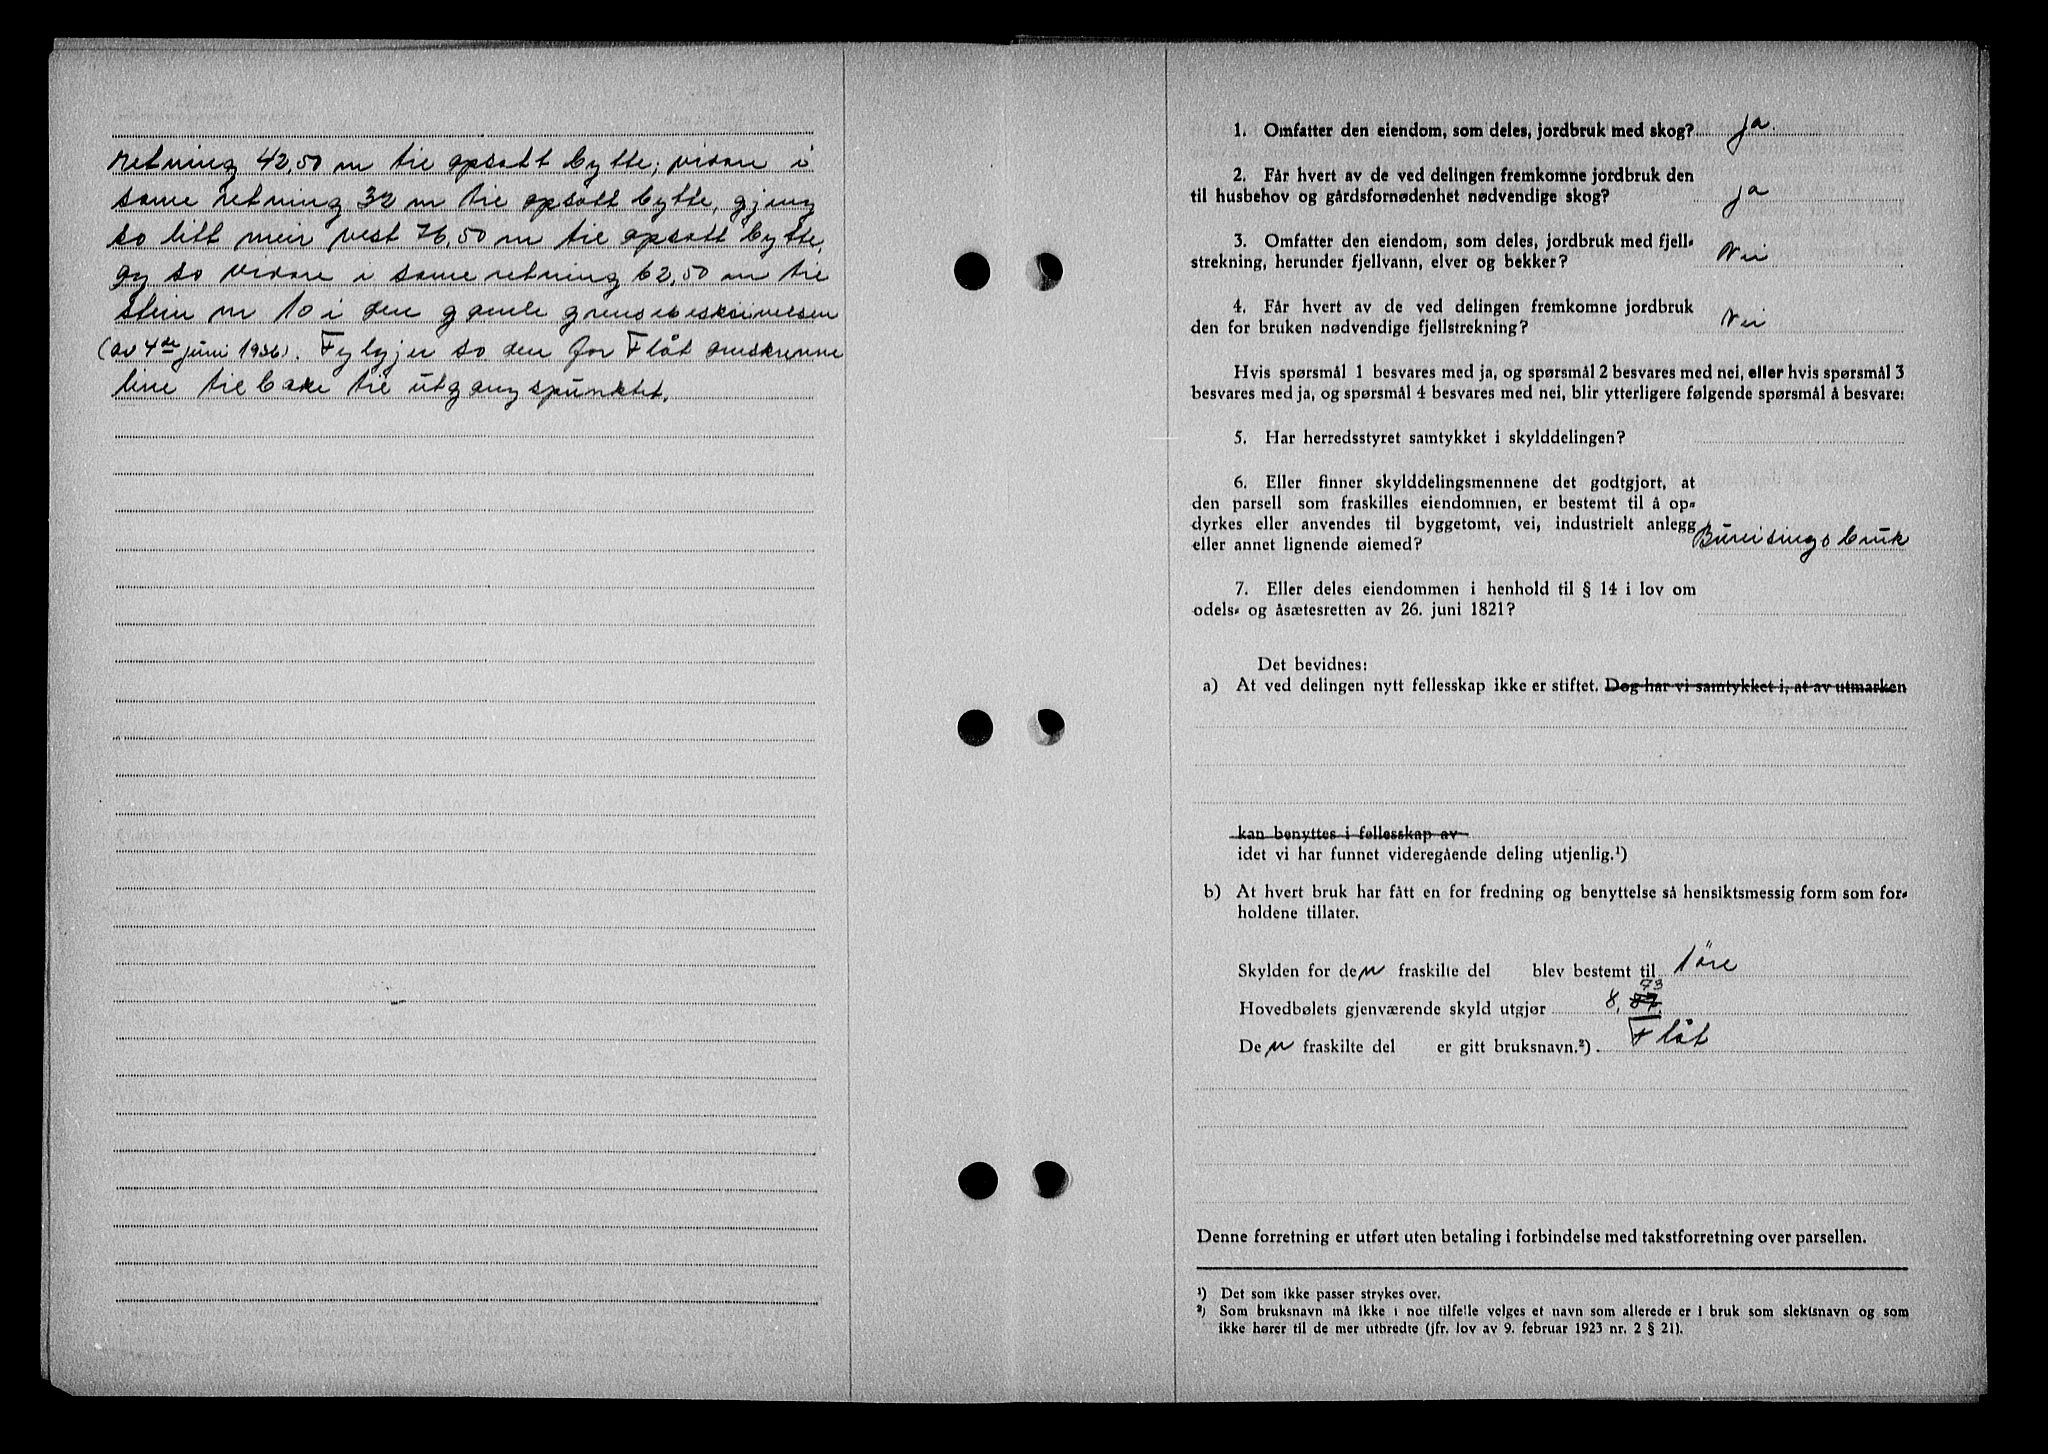 retning 42,50 m til opsatt bytte; vidare i
same retning 32 m til opsatt bytte, gjeng
so litt meir vest 76,50 m til opsatt bytte,
og so vidare i same retning 62,50 m til
stein nr 10 i den gamle grensebeskrivelsen
(av 4de juni 1936). Fylgjer so den for Flåt omskrevne
line tilbake til utgangspunktet.
1. Omfatter den eiendom, som deles, jordbruk med skog? ja.
2. Får hvert av de ved delingen fremkomne jordbruk den
til husbehov og gårdsfornødenhet nødvendige skog? ja
3. Omfatter den eiendom, som deles, jordbruk med fjell-
strekning, herunder fjellvann, elver og bekker? Nei
4. Får hvert av de ved delingen fremkomne jordbruk
den for bruken nødvendige fjellstrekning? Nei
Hvis spørsmål 1 besvares med ja, og spørsmål 2 besvares med nei, eller hvis spørsmål 3
besvares med ja, og spørsmål 4 besvares med nei, blir ytterligere følgende spørsmål å besvare:
5. Har herredsstyret samtykket i skylddelingen?
6. Eller finner skylddelingsmennene det godtgjort, at
den parsell som fraskilles eiendommen, er bestemt til å op-
dyrkes eller anvendes til byggetomt, vei, industrielt anlegg
eller annet lignende øiemed? Bureisingsbruk
7. Eller deles eiendommen i henhold til § 14 i lov om
odels- og åsætesretten av 26. juni 1821?
Det bevidnes:
a) At ved delingen nytt fellesskap ikke er stiftet. Dog har vi samtykket i, at av utmarken
kan benyttes i fellesskap av
idet vi har funnet videregående deling utjenlig.¹)
b) At hvert bruk har fått en for fredning og benyttelse så hensiktsmessig form som for-
holdene tillater.
Skylden for den fraskilte del blev bestemt til 1 øre
Hovedbølets gjenværende skyld utgjør 8,73
Den fraskilte del er gitt bruksnavn.²) Flåt
Denne forretning er utført uten betaling i forbindelse med takstforretning over parsellen.
¹) Det som ikke passer strykes over.
²) Som bruksnavn må ikke i noe tilfelle velges et navn som allerede er i bruk som slektsnavn og som
ikke hører til de mer utbredte (jfr. lov av 9. februar 1923 nr. 2 § 21).